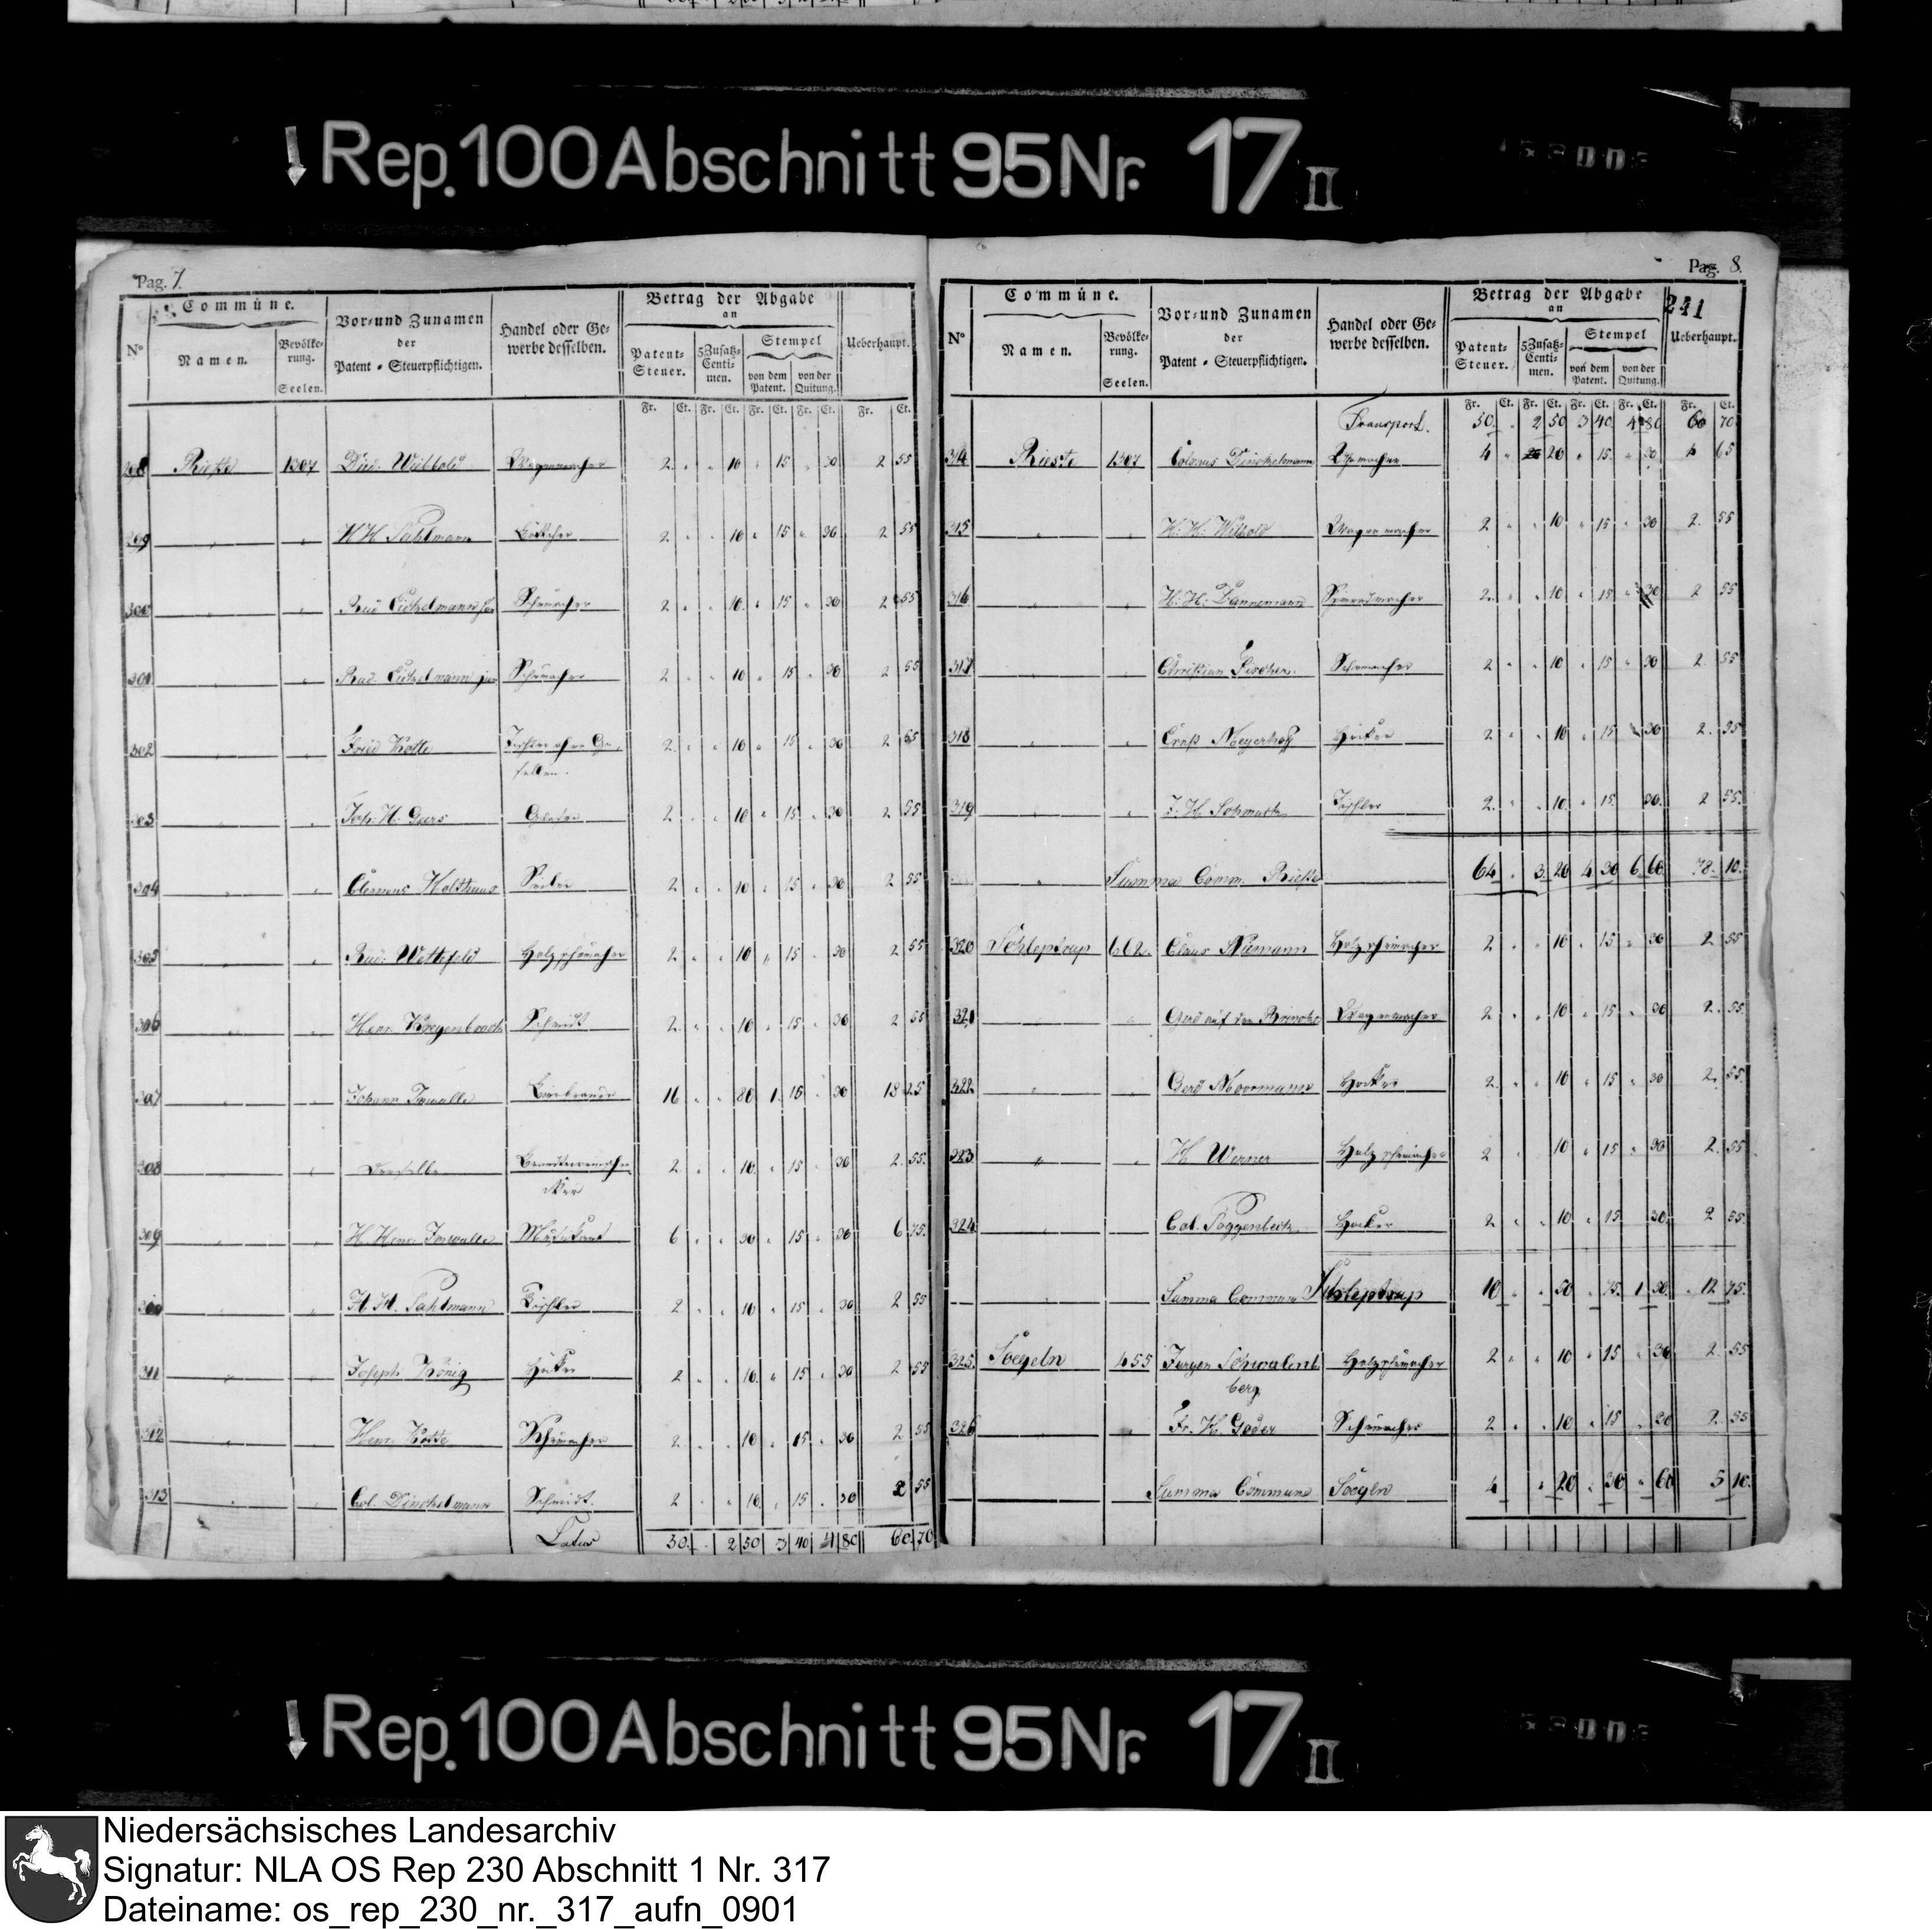 Rep. 100 Abschnitt 95 Nr. 17 II
Pag. 7.
Commüne.
Vor- und Zunamen
der
Patent-Steuerpflichtigen.
Handel oder Ge-
werbe desselben.
Betrag der Abgabe
an
Stempel
Ueberhaupt.
N°
Namen.
Bevölke-
rung.
Seelen.
Patent-
Steuer.
5 Zusatz-
Centi-
men.
von dem
Patent.
von der
Quitung.
Fr. Ct. Fr. Ct. Fr. Ct. Fr. Ct. Fr. Ct.
298 Rieste 1307 Died. Wübbold Wagenmacher 2 " " 10 " 15 " 30 2 55
299 " " H H Pahlmann Böttcher 2 " " 10 " 15 " 30 2 55
300 " " Rud Eickelmann Sen Schumacher 2 " " 10 " 15 " 30 2 55
301 " " Rud. Eickelmann jun Schumacher 2 " " 10 " 15 " 30 2 55
302 " " Fried Kotte Tischler ohne Ge-
sellen. 2 " " 10 " 15 " 30 2 55
303 " " Jos. H. Gers 2 " " 10 " 15 " 30 2 55
304 " " Clemens Holthaus 2 " " 10 " 15 " 30 2 55
305 " " Rud. Holzschumacher 2 " " 10 " 15 " 30 2 55
306 " " Henr. Kreyenbrock Schmidt 2 " " 10 " 15 " 30 2 55
307 " " Johann Bierbrauer 16 " " 80 1 15 " 30 18 25
308 " Derselbe 2 " " 10 " 15 " 30 2 55
309 " " H. Henr. Musikant 6 " " 30 " 15 " 30 6 75
310 " " H. H. Pahlmann Tischler 2 " " 10 " 15 " 30 2 55
311 " " Joseph König Höker 2 " " 10 " 15 " 30 2 55
312 " " Henr. Kotte Schumacher 2 " " 10 " 15 " 30 2 55
313 " " Col. Dinckelmann Schmidt. 2 " " 10 " 15 " 30 2 55
Latus 50 " 2 50 3 40 4 80 60 70
Pag. 8.
241
Commüne.
Vor- und Zunamen
der
Patent-Steuerpflichtigen.
Handel oder Ge-
werbe desselben.
Betrag der Abgabe
an
Stempel
Ueberhaupt.
N°
Namen.
Bevölke-
rung.
Seelen.
Patent-
Steuer.
5 Zusatz-
Centi-
men.
von dem
Patent.
von der
Quitung.
Fr. Ct. Fr. Ct. Fr. Ct. Fr. Ct. Fr. Ct.
Transport. 50 " 2 50 3 40 4 80 60 70
314 Rieste 1307 Colonus Dinckelmann 4 " 20 " 15 " 30 4 65
315 " " H. H. Wibbold Wagenmacher 2 " " 10 " 15 " 30 2 55
316 " " H. H. Dannemann 2 " " 10 " 15 " 30 2 55
317 " " Christian Fischer. Schumacher 2 " " 10 " 15 " 30 2 55
318 " " Ernst Meyerhoff Höker 2 " " 10 " 15 " 30 2 55
319 " " J. H. Tischler 2 " " 10 " 15 30 2 55
" Summa Comm. Rieste 64 " 3 20 4 30 6 60 78 10
320 Schleptrup 602. Claus Numann Holzschumacher 2 " " 10 " 15 " 30 2 55
321 " " Gerd auf dem Brincke Wagenmacher 2 " " 10 " 15 " 30 2 55
322 " " Gerd Moormann Höker 2 " " 10 " 15 " 30 2 55
323 " " H Werner Holzschumacher 2 " 10 " 15 " 30 2 55
324 " Col. Poggenbeck Höcker 2 " " 10 " 15 30 2 55
" Summa Commun Schleptrup 10 " " 50 " 75 1 50 12 75
325 Soegeln 455 Jurgen Schwalen-
berg Holzschumacher 2 " " 10 " 15 " 30 2 55
326 " " Fr. H. Goder Schumacher 2 " " 10 " 15 " 30 2 55
Summa Commune Soegln 4 " 20 " 30 " 60 5 10
Rep. 100 Abschnitt 95 Nr. 17 II
Niedersächsisches Landesarchiv
Signatur: NLA OS Rep 230 Abschnitt 1 Nr. 317
Dateiname: os_rep_230_nr._317_aufn_0901